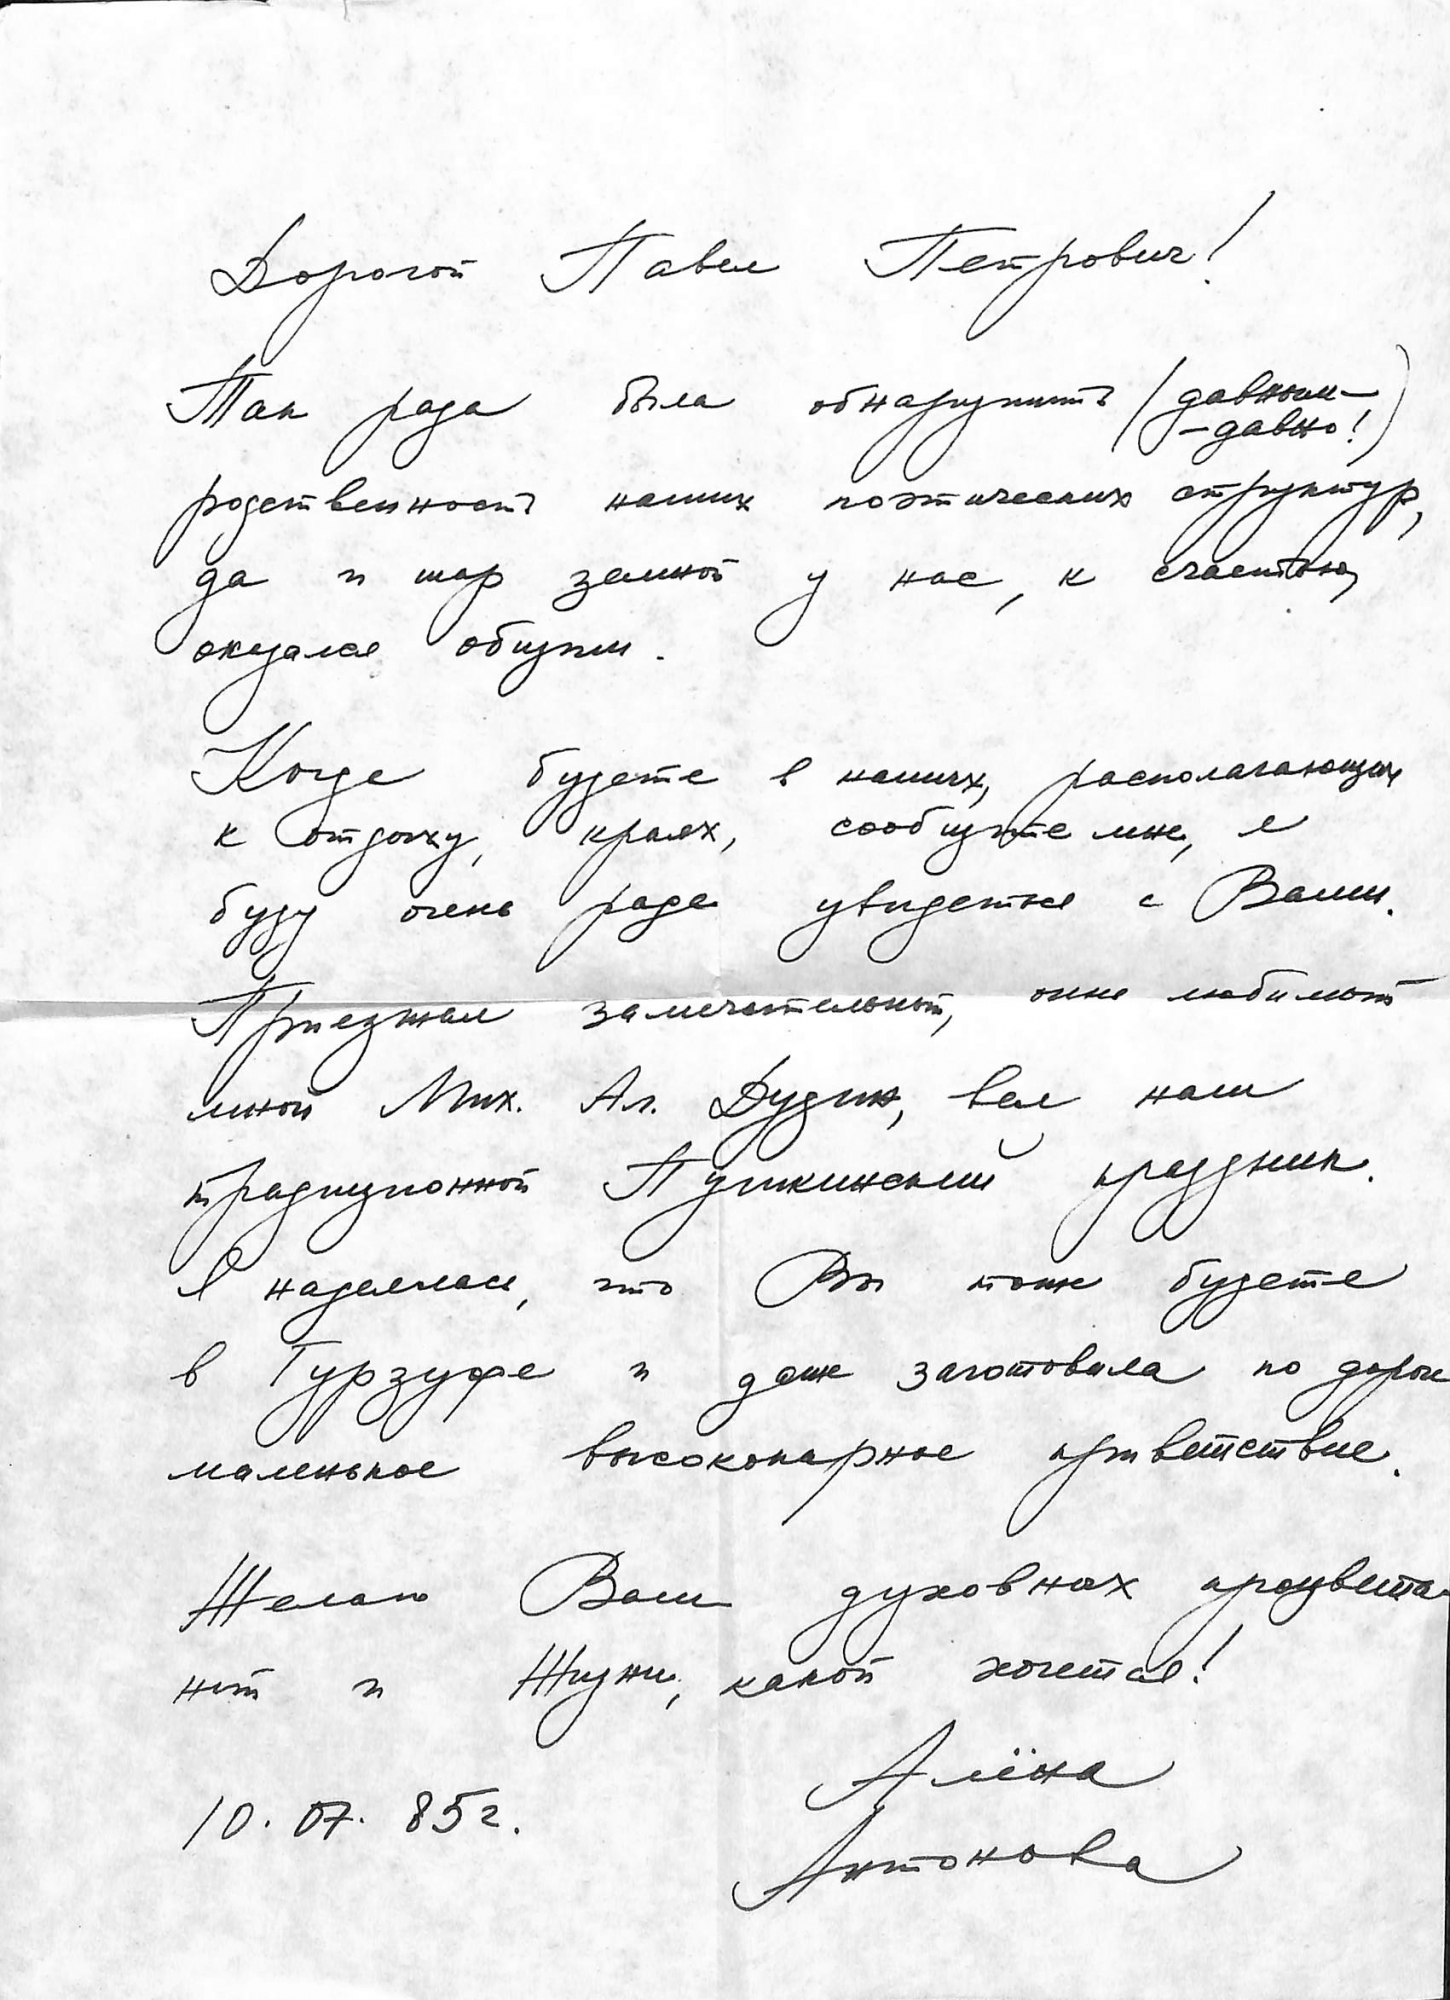 Дорогой Павел Петрович!
Так рада была обнаружить (давным-
-давно!)
родственность наших поэтических структур,
да и шар земной у нас, к счастью,
оказался общим.
Когда будете в наших, располагающих
к отдыху, краях, сообщите мне, я
буду очень рада увидеться с Вами.
Приезжал замечательный, очень любимый
мной Мих. Ал. Дудин, вел наш
традиционной Пушкинский праздник.
Я надеялась, что Вы тоже будете
в Гурзуфе и даже заготовила по дороге
маленькое высокопарное приветствие.
Желаю Вам духовных процвета-
ний и Жизни, какой хочется!
Алёна
10.07.85г.
Антонова